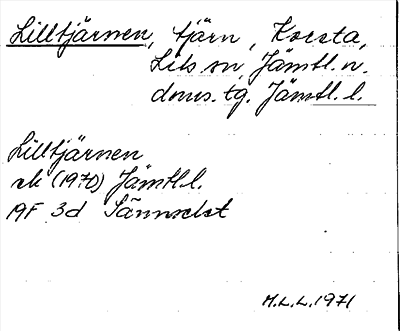 Lilltjärnen, tjärn, Korsta,
Lits sn Jämtl. n.
doms. tg. Jämtl. l.
Lilltjärnen
ek (1970) Jämtl. l.
19F 3d Sännselet
M.L.L. 1971